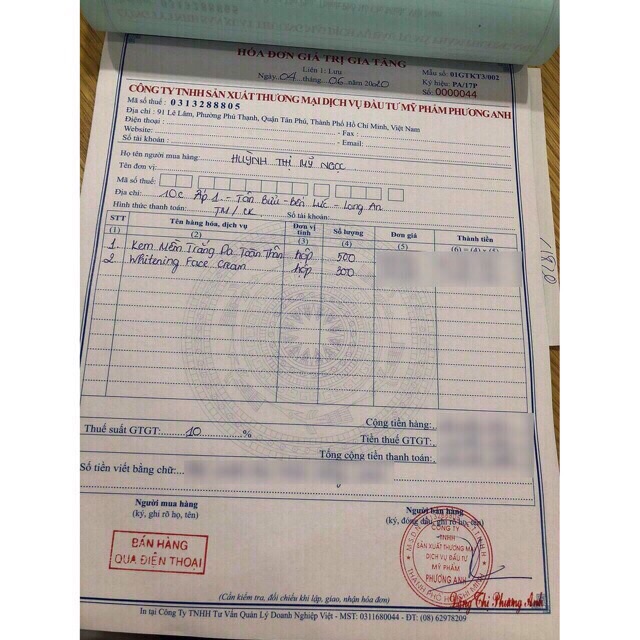 HÓA ĐƠN GIÁ TRỊ GIA TĂNG
Liên 1: Lưu
Ngày 04 tháng 06 năm 2020
Mẫu số: 01GTKT3/002
Ký hiệu: PA/17P
Số: 0000044
CÔNG TY TNHH SẢN XUẤT THƯƠNG MẠI DỊCH VỤ ĐẦU TƯ MỸ PHẨM PHƯƠNG ANH
Mã số thuế: 0313288805
Địa chỉ: 91 Lê Lâm, Phường Phú Thạnh, Quận Tân Phú, Thành Phố Hồ Chí Minh, Việt Nam
Điện thoại: - Fax:
Website: - Email:
Số tài khoản:
Họ tên người mua hàng: HUỲNH THỊ MỸ NGỌC
Tên đơn vị:
Mã số thuế:
Địa chỉ: 10C Ấp 1 - Tân Bửu - Bến Lức - Long An
Hình thức thanh toán: TM/CK Số tài khoản:
STT Tên hàng hóa, dịch vụ Đơn vị tính Số lượng Đơn giá Thành tiền
(1) (2) (3) (4) (5) (6) = (4) x (5)
1. Kem Mềm Trắng Da Toàn Thân hộp 500
2. Whitening Face Cream hộp 300
Cộng tiền hàng:
Thuế suất GTGT: 10 % Tiền thuế GTGT:
Tổng cộng tiền thanh toán:
Số tiền viết bằng chữ:
Người mua hàng
(ký, ghi rõ họ, tên)
Người bán hàng
(ký, đóng dấu, ghi rõ họ, tên)
BÁN HÀNG
QUA ĐIỆN THOẠI
CÔNG TY
TNHH
SẢN XUẤT THƯƠNG MẠI
DỊCH VỤ ĐẦU TƯ
MỸ PHẨM
PHƯƠNG ANH
THÀNH PHỐ HỒ CHÍ MINH
Đặng Thị Phương Anh
(Cần kiểm tra, đối chiếu khi lập, giao, nhận hóa đơn)
In tại Công Ty TNHH Tư Vấn Quản Lý Doanh Nghiệp Việt - MST: 0311680044 - ĐT: (08) 62978209